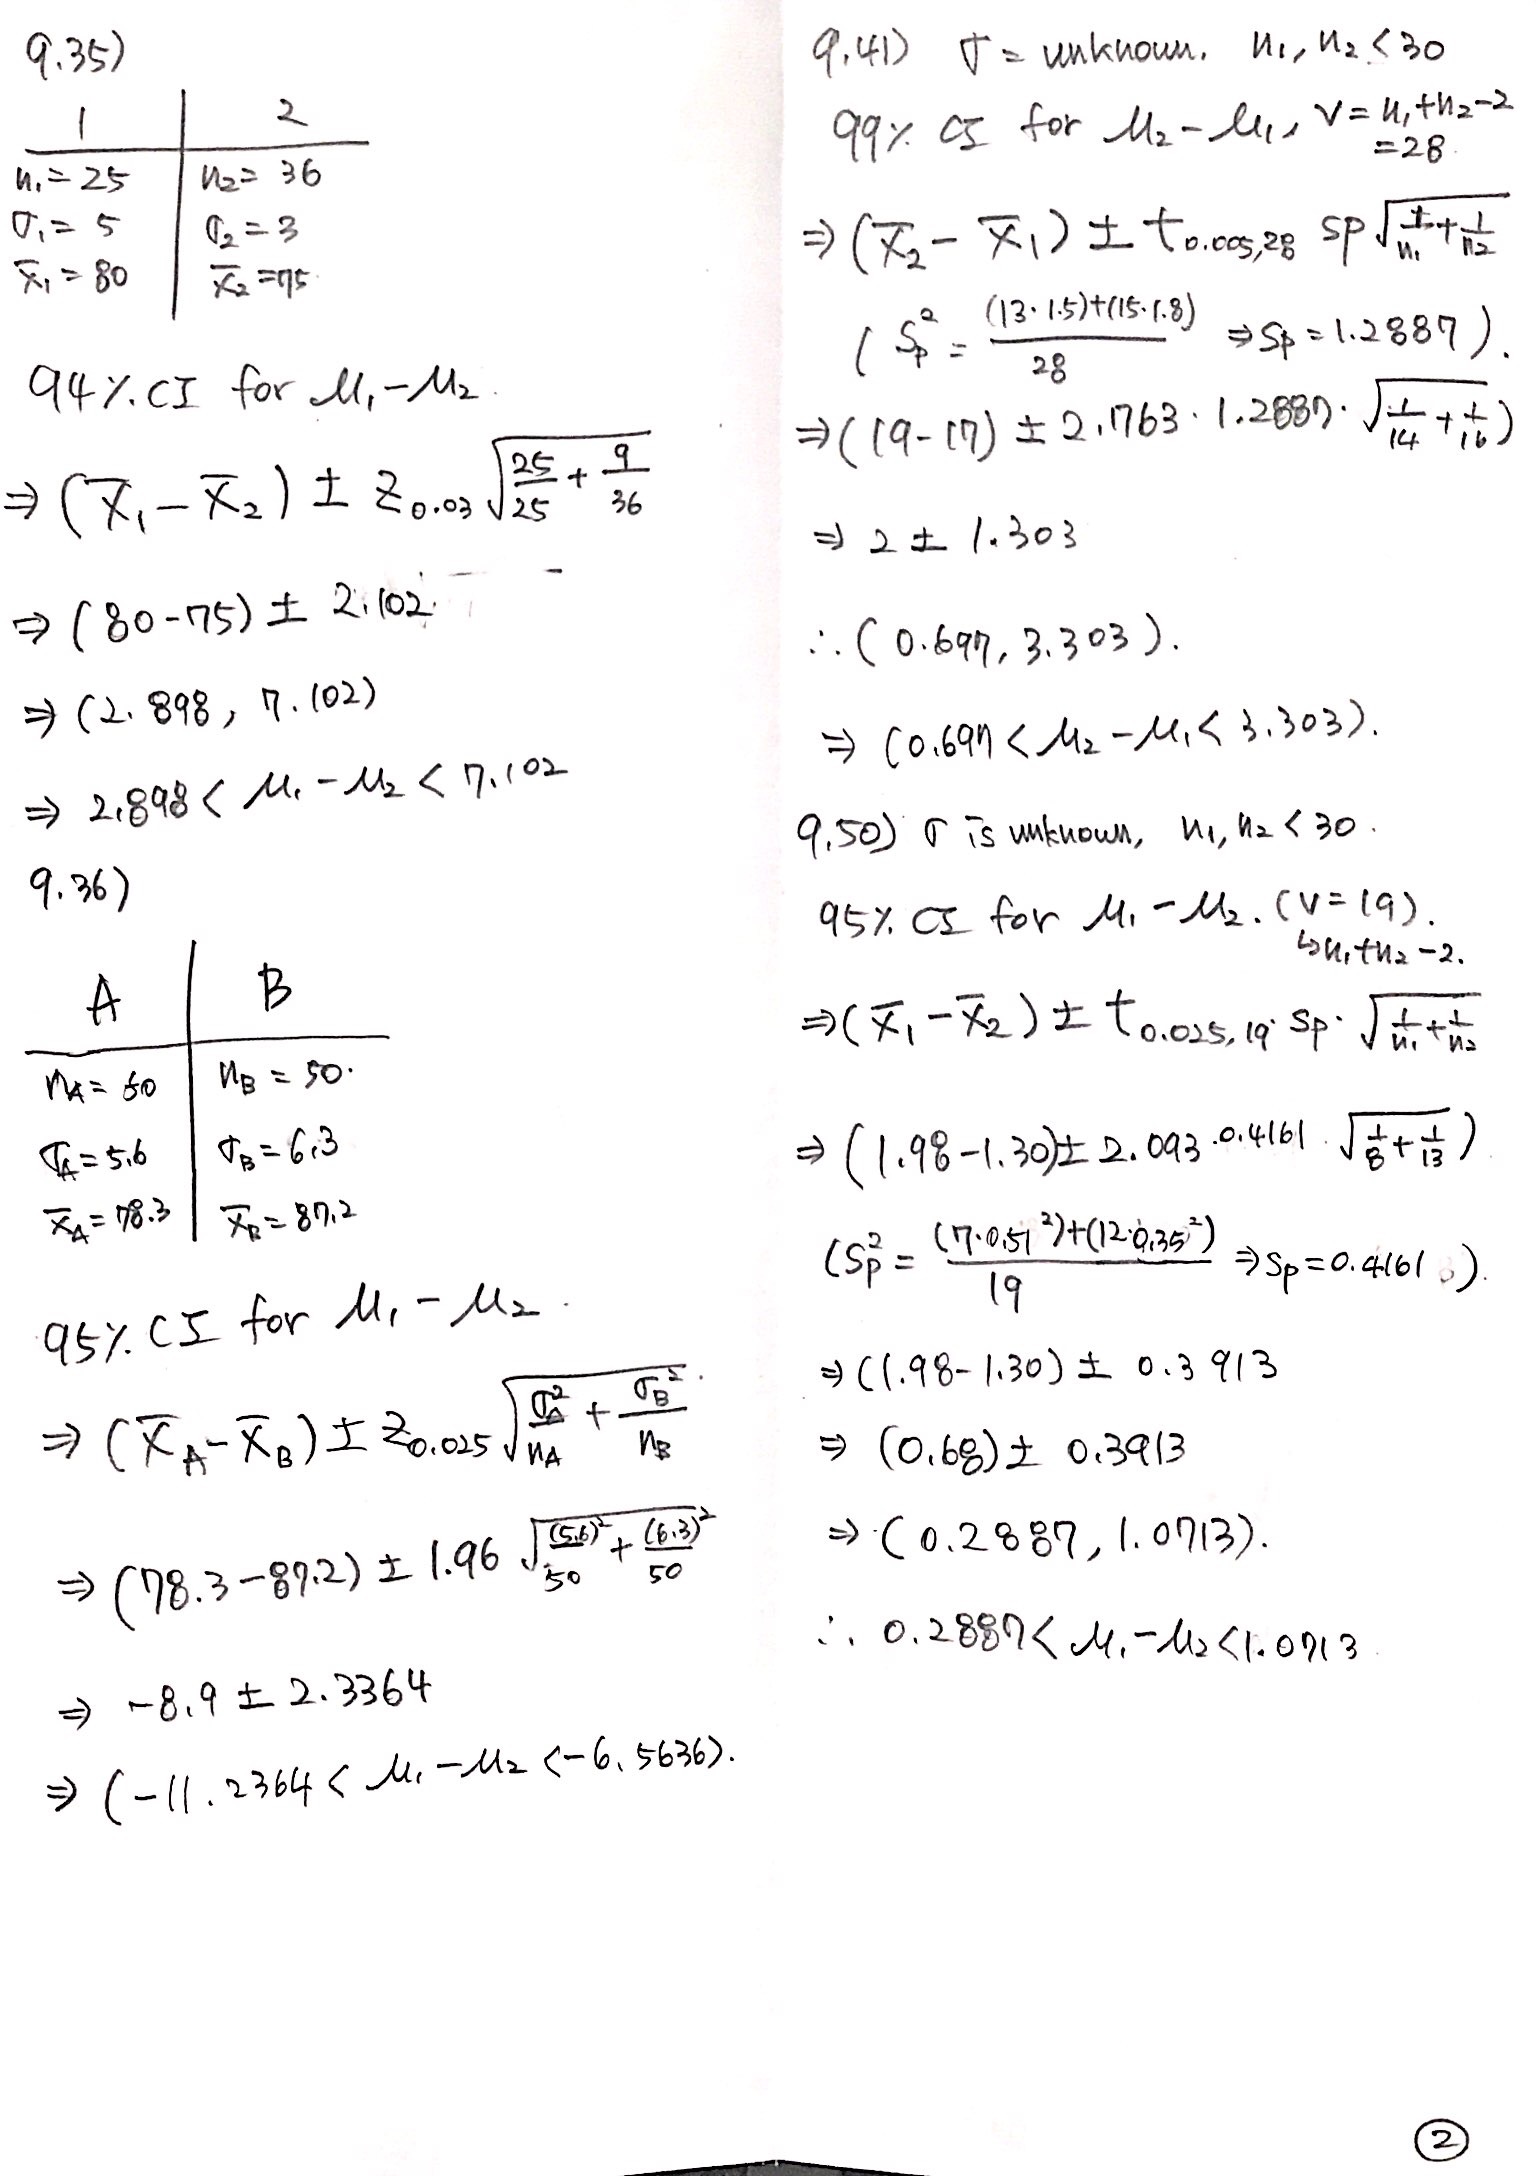 9.35)
1 | 2
n₁ = 25 | n₂ = 36
σ₁ = 5 | σ₂ = 3
x̄₁ = 80 | x̄₂ = 75
94% CI for μ₁ - μ₂
⇒ (x̄₁ - x̄₂) ± z₀.₀₃ √(25/25 + 9/36)
⇒ (80-75) ± 2.102
⇒ (2.898, 7.102)
⇒ 2.898 < μ₁ - μ₂ < 7.102
9.36)
A | B
n_A = 50 | n_B = 50.
σ_A = 5.6 | σ_B = 6.3
x̄_A = 78.3 | x̄_B = 87.2
95% CI for μ₁ - μ₂.
⇒ (x̄_A - x̄_B) ± z₀.₀₂₅ √(σ_A²/n_A + σ_B²/n_B).
⇒ (78.3 - 87.2) ± 1.96 √((5.6)²/50 + (6.3)²/50)
⇒ -8.9 ± 2.3364
⇒ (-11.2364 < μ₁ - μ₂ < -6.5636).
9.41) σ = unknown. n₁, n₂ < 30
99% CI for μ₂ - μ₁, v = n₁+n₂-2
= 28.
⇒ (x̄₂ - x̄₁) ± t₀.₀₀₅,₂₈ sp √(1/n₁ + 1/n₂)
(Sp² = ((13·1.5)+(15·1.8))/28 ⇒ Sp = 1.2887).
⇒ ((19-17) ± 2.763 · 1.2887 · √(1/14 + 1/16))
⇒ 2 ± 1.303
∴ (0.697, 3.303).
⇒ (0.697 < μ₂ - μ₁ < 3.303).
9.50) σ is unknown, n₁, n₂ < 30.
95% CI for μ₁ - μ₂. (v = 19).
↳ n₁+n₂-2.
⇒ (x̄₁ - x̄₂) ± t₀.₀₂₅,₁₉ · sp · √(1/n₁ + 1/n₂)
⇒ (1.98-1.30) ± 2.093 · 0.4161 · √(1/8 + 1/13))
(Sp² = ((7·0.51²)+(12·0.35²))/19 ⇒ Sp = 0.4161).
⇒ (1.98-1.30) ± 0.3913
⇒ (0.68) ± 0.3913
⇒ (0.2887, 1.0713).
∴ 0.2887 < μ₁ - μ₂ < 1.0713
②